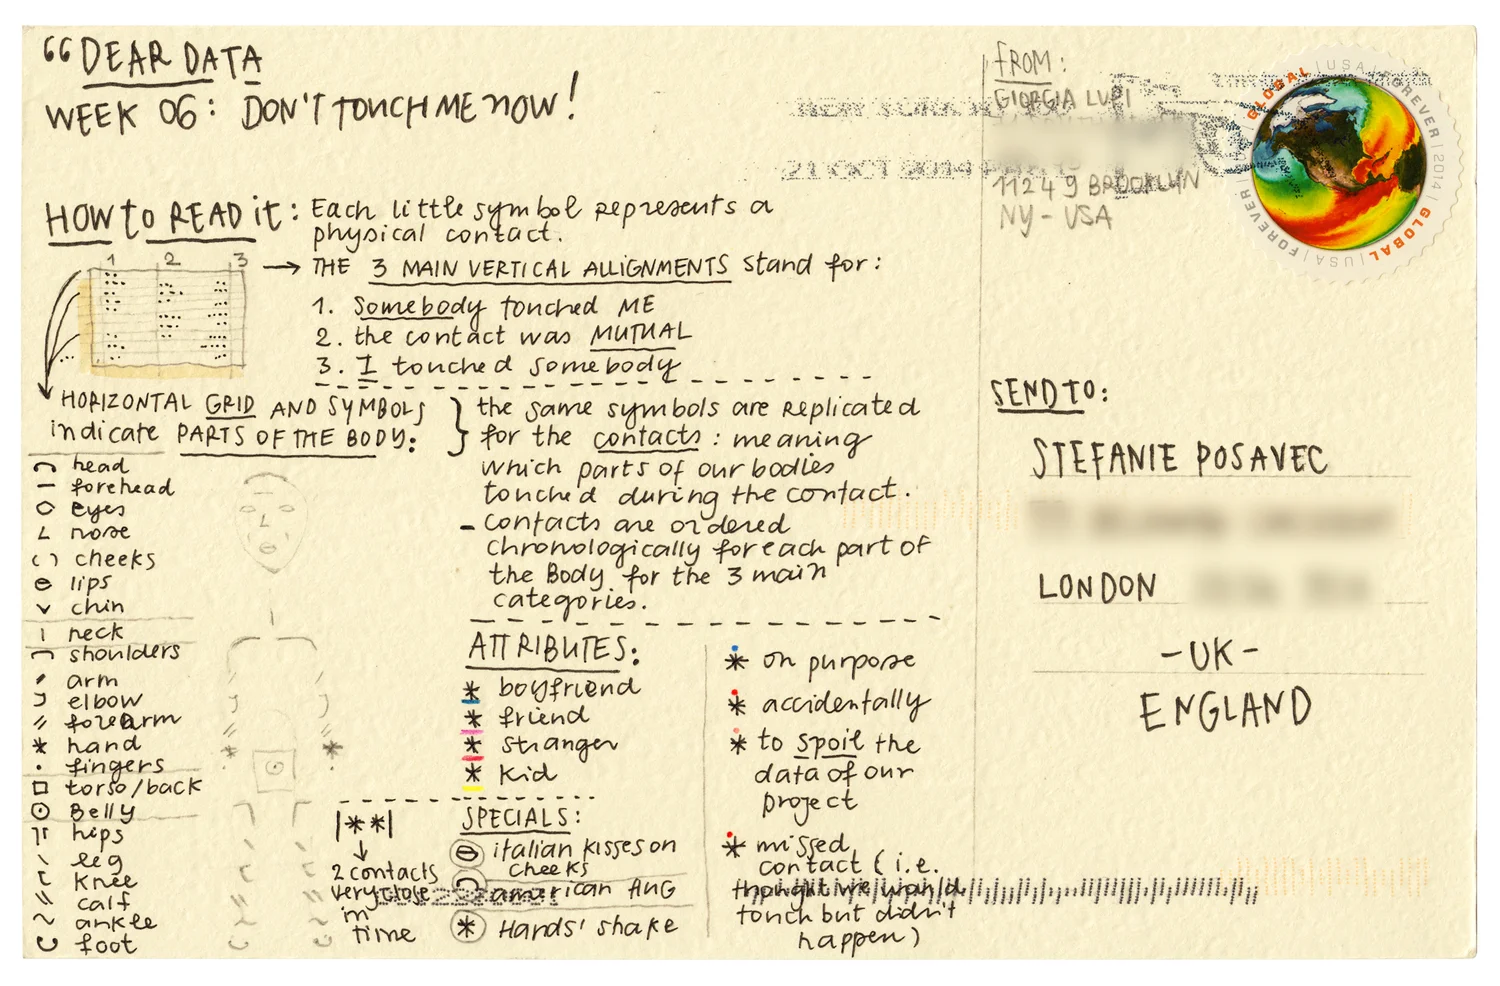 “DEAR DATA
WEEK 06: DON'T TOUCH ME NOW!
HOW to READ it: Each little symbol represents a
physical contact.
1 2 3
→ THE 3 MAIN VERTICAL ALLIGNMENTS stand for:
1. Somebody touched ME
2. the contact was MUTUAL
3. I touched somebody
HORIZONTAL GRID AND SYMBOLS
indicate PARTS OF THE BODY:
head
forehead
eyes
nose
cheeks
lips
chin
neck
shoulders
arm
elbow
forearm
hand
fingers
torso/back
Belly
hips
leg
knee
calf
ankle
foot
the same symbols are replicated
for the contacts: meaning
which parts of our bodies
touched during the contact.
- contacts are ordered
chronologically for each part of
the Body for the 3 main
categories.
ATTRIBUTES:
* boyfriend
* friend
* stranger
* kid
|**|
↓
2 contacts
very close
in
time
SPECIALS:
italian kisses on
cheeks
american HUG
* Hands' shake
* on purpose
* accidentally
* to spoil the
data of our
project
* missed
contact (i.e.
thought we would
touch but didn't
happen)
FROM:
GIORGIA LUPI
11249 BROOKLYN
NY - USA
NEW YORK
21 OCT 2014
GLOBAL | USA | FOREVER | 2014 | GLOBAL | USA | FOREVER
SEND TO:
STEFANIE POSAVEC
LONDON
- UK -
ENGLAND